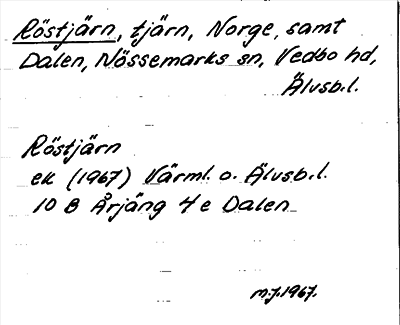 Röstjärn, tjärn, Norge, samt
Dalen, Nössemarks sn, Vedbo hd,
Älvsb.l.
Röstjärn
ek (1967) Värml. o. Älvsb.l.
10 B Årjäng 4 e Dalen
m.j.1967.